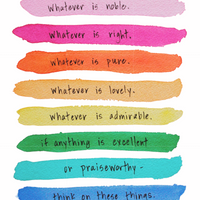 whatever is noble.
whatever is right.
whatever is pure.
whatever is lovely.
whatever is admirable.
if anything is excellent
or praiseworthy -
think on these things.